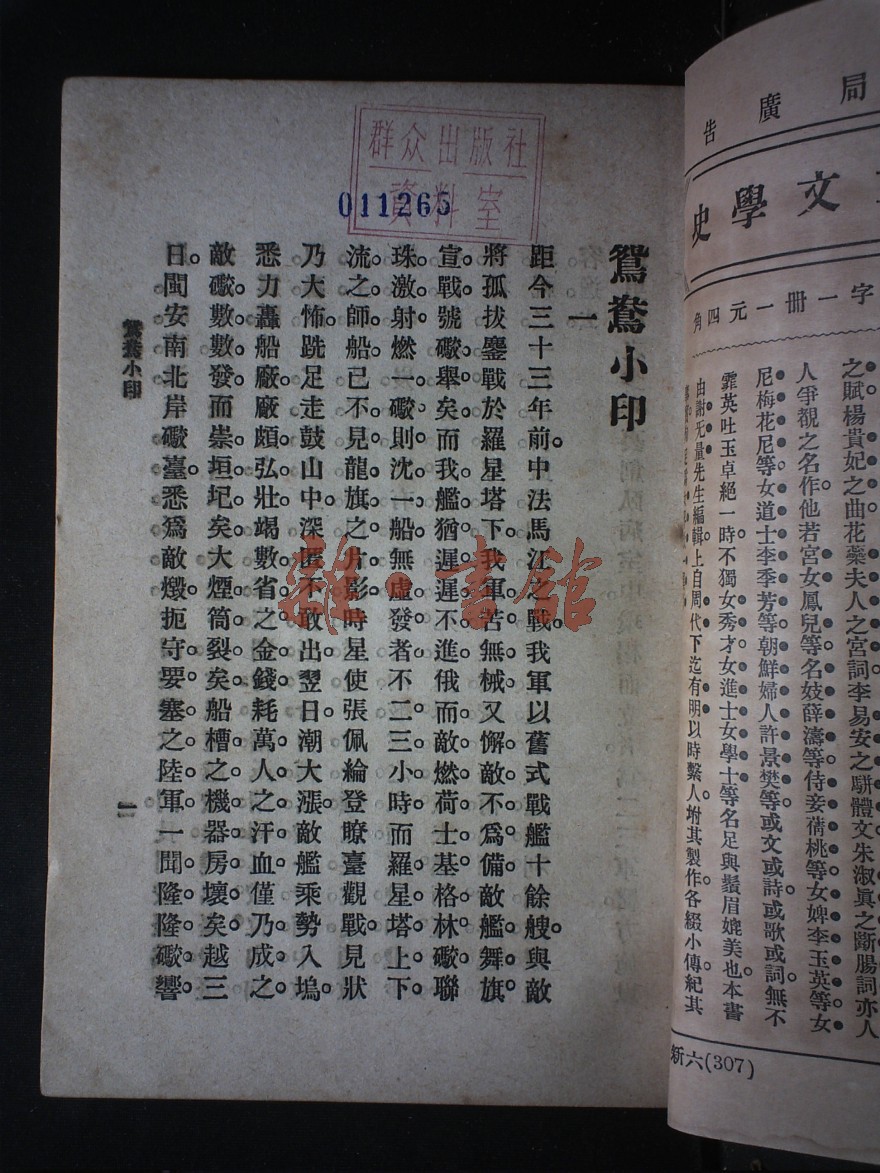 局廣告
文學史
字一冊一元四角
之賦楊貴妃之曲花蘂夫人之宮詞李易安之駢體文朱淑眞之斷腸詞亦人
人爭覩之名作他若宮女鳳兒等名妓薛濤等侍妾蒨桃等女婢李玉英等女
尼梅花尼等女道士李季芳等朝鮮婦人許景樊等或文或詩或歌或詞無不
霏英吐玉卓絕一時不獨女秀才女進士女學士等名足與鬚眉媲美也。本書
由謝无量先生編輯上自周代下迄有明以時繫人坿其製作各綴小傳紀其
新六(307)
群众出版社
資料室
011265
鴛鴦小印
一
距今三十三年前。中法馬江之戰。我軍以舊式戰艦十餘艘。與敵
將孤拔鏖戰於羅星塔下。我軍苦無械。又懈敵不爲備。敵艦舞旗。
宣戰。號礮舉矣。而我艦猶遲遲不進。俄而敵燃荷士基格林礮。聯
珠激射。燃一礮。則沈一船。無虛發者。不二三小時。而羅星塔上下
流之師船。已不見龍旗之片影。時星使張佩綸登瞭臺觀戰。見狀
乃大怖。跣足走鼓山中。深匿不敢出。翌日潮大漲。敵艦乘勢入塢。
悉力轟船廠。廠頗弘壯。竭數省之金錢。耗萬人之汗血。僅乃成之。
敵礮數數發。而崇垣圮矣。大煙筒裂矣。船槽之機器房壞矣。越三
日。閩安南北岸礮臺。悉爲敵燬。扼守要塞之陸軍。一聞隆隆礮響。
鴛鴦小印
一
雜·書館